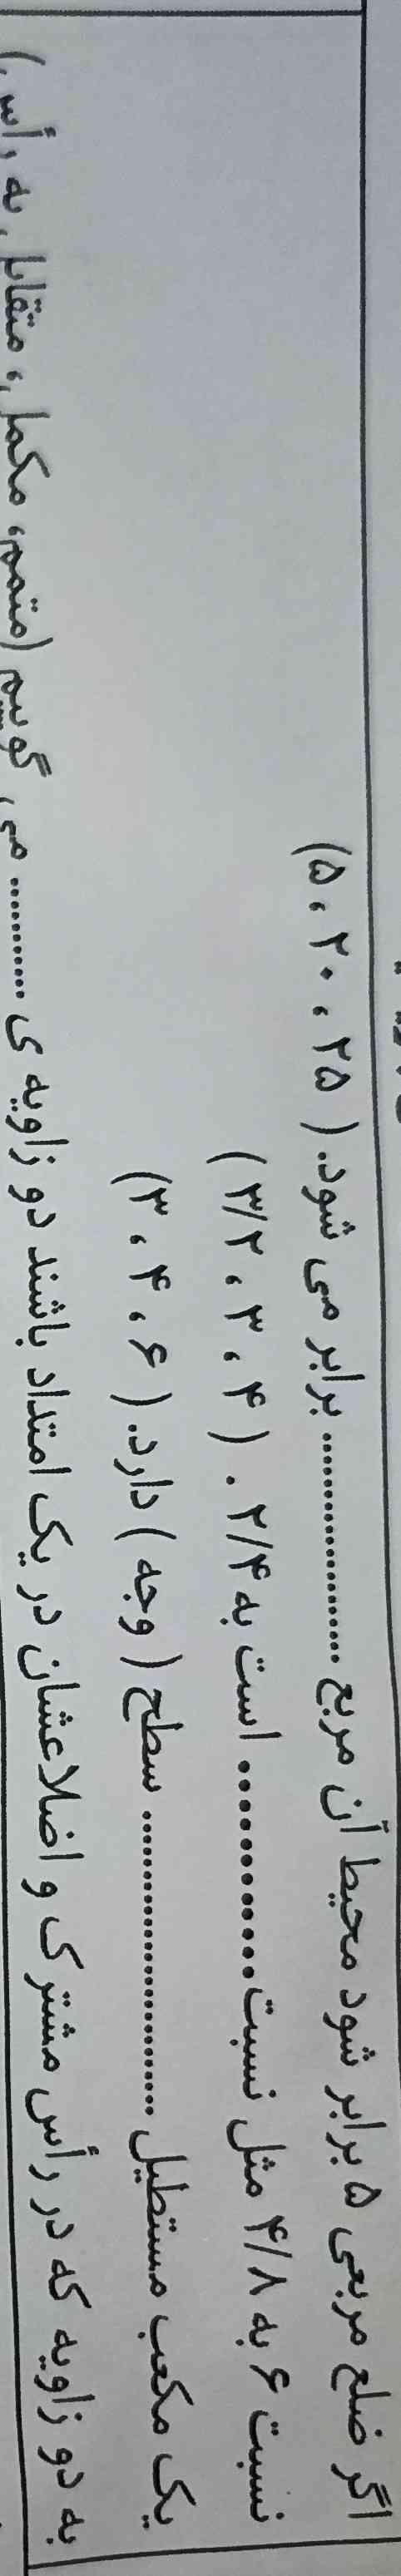 اگر ضلع مربعی ۵ برابر شود محیط آن مربع .................... برابر می شود. ( ۲۵ ، ۲۰ ، ۵)
نسبت ۶ به ۴/۸ مثل نسبت............ است به ۲/۴ . ( ۴ ، ۳ ، ۳/۲ )
یک مکعب مستطیل ........................ سطح ( وجه ) دارد. ( ۶ ، ۴ ، ۳)
به دو زاویه که در رأس مشترک و اضلاعشان در یک امتداد باشند دو زاویه ی ............ می گوییم (متمم، مکمل، متقابل به رأس )